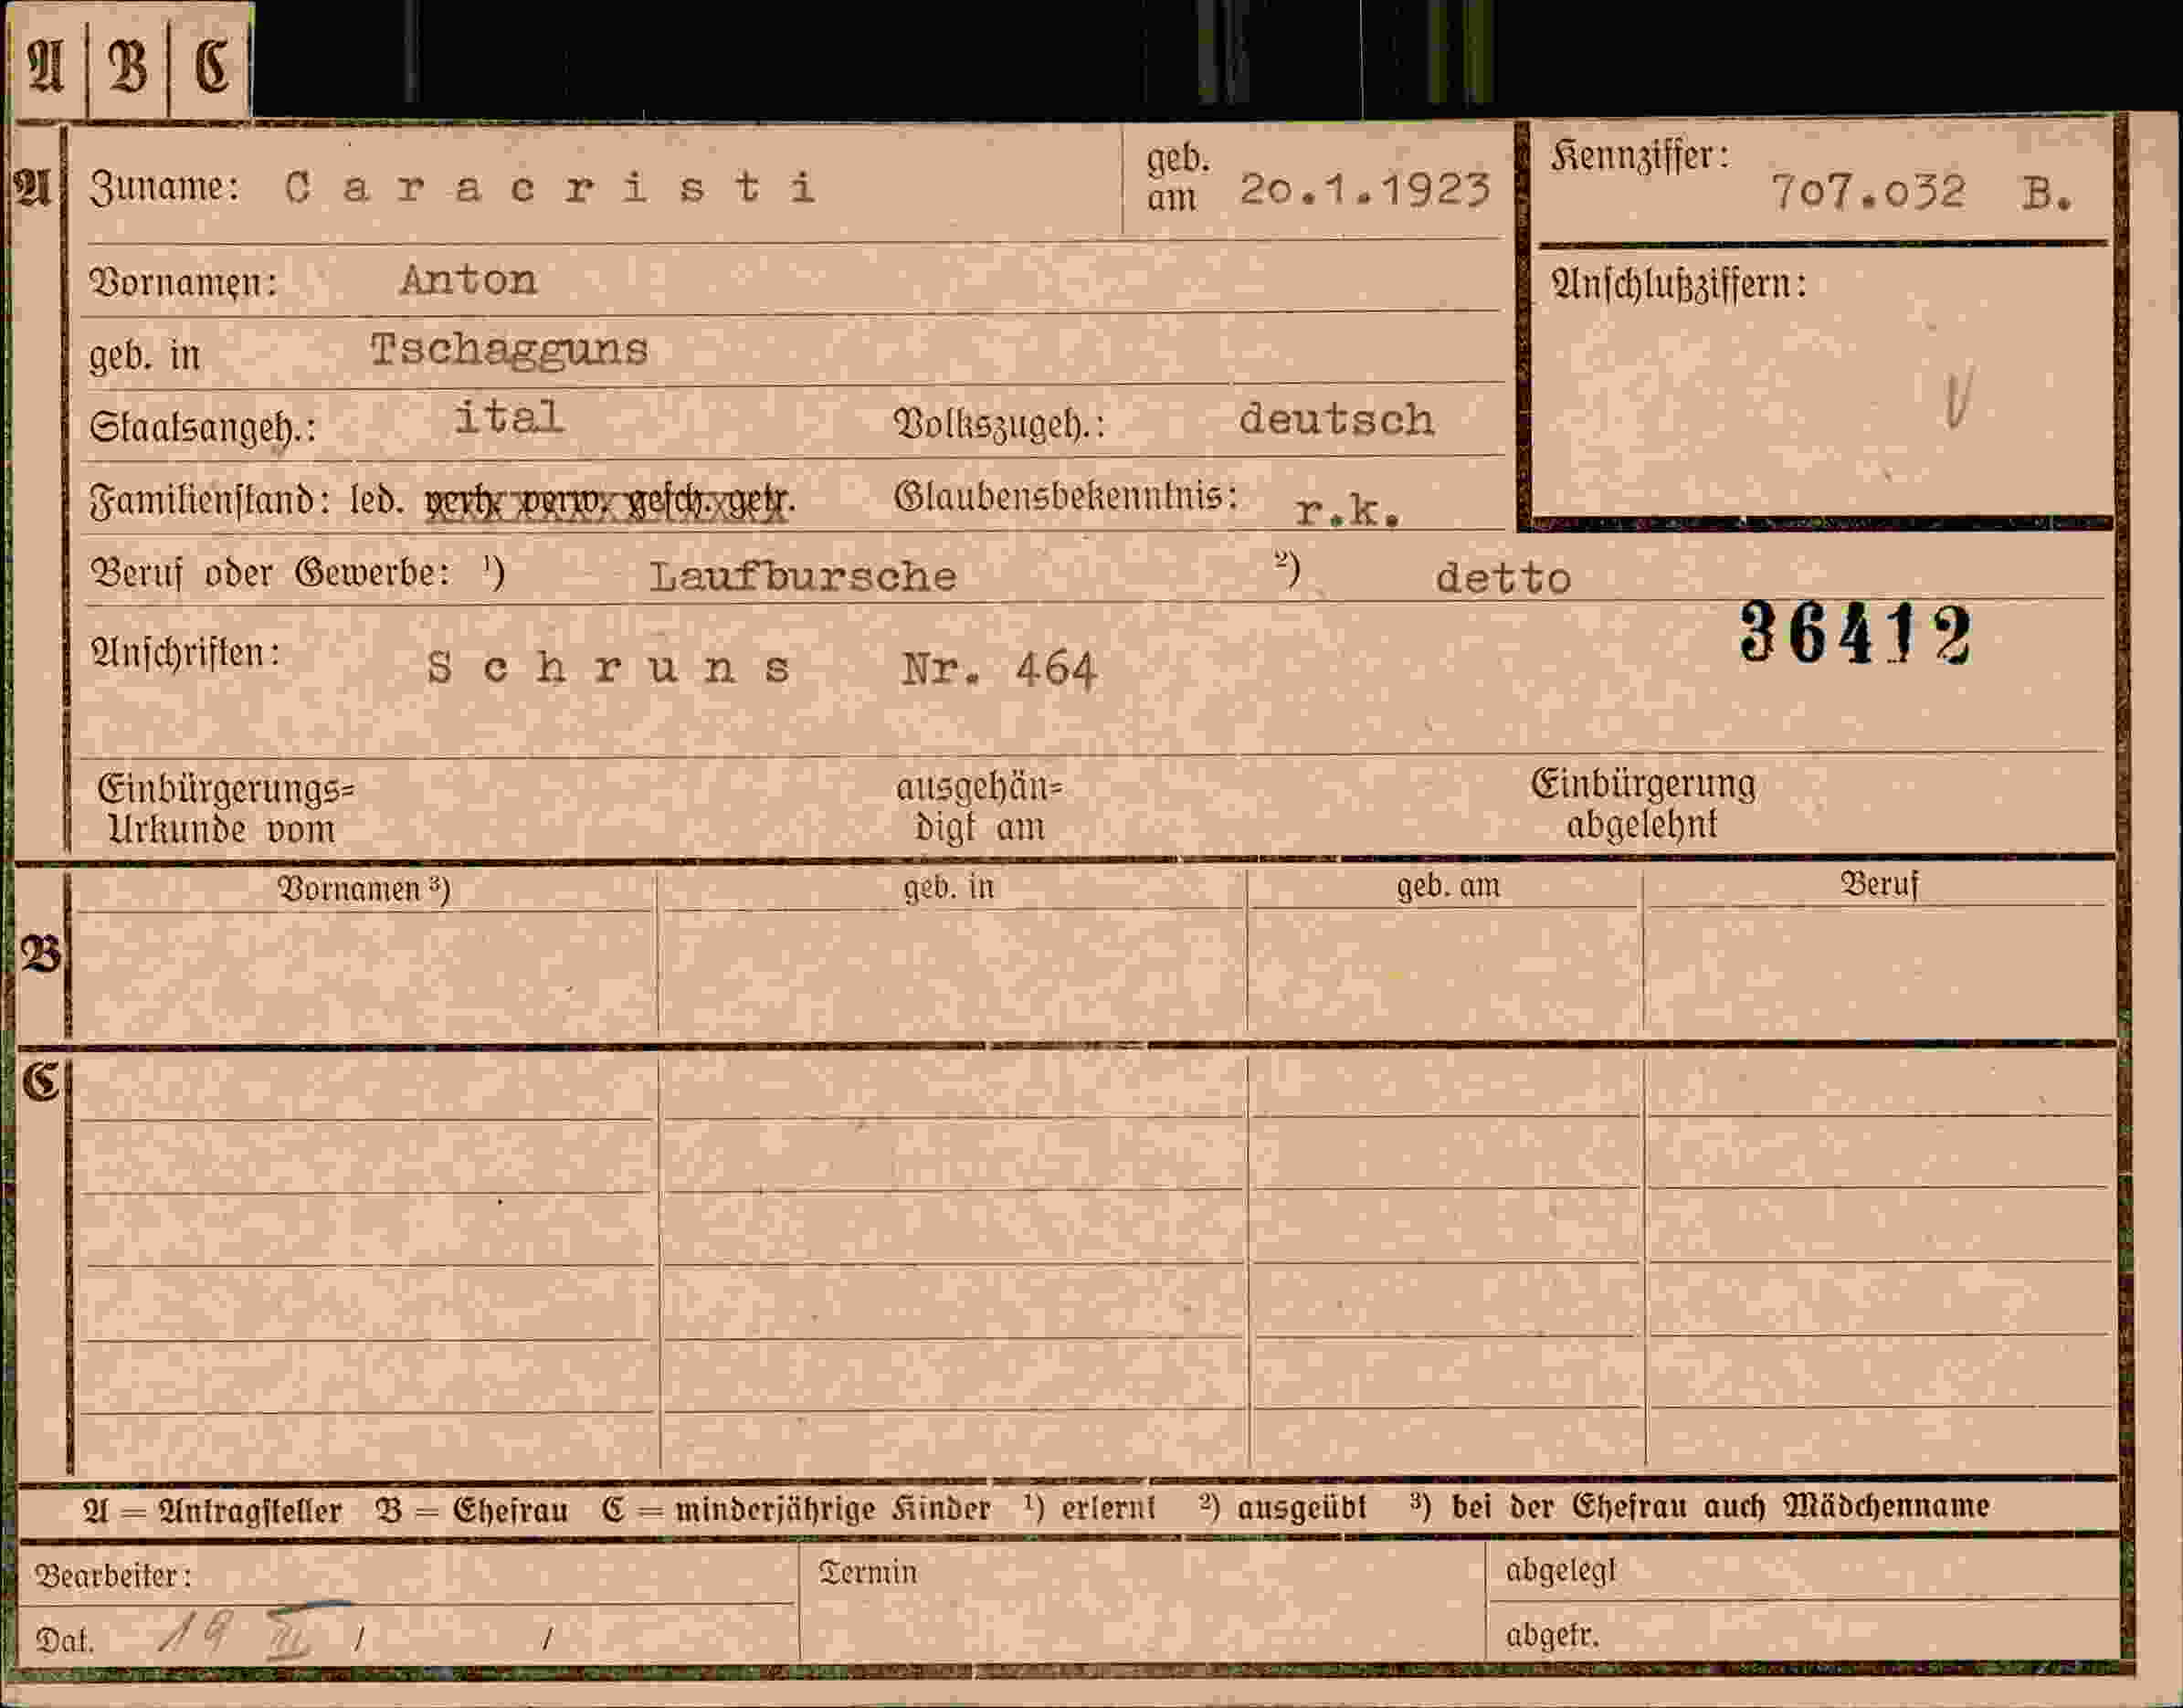 A B C
A Zuname: Caracristi geb. am 20.1.1923 Kennziffer: 707.032 B.
Vornamen: Anton Anschlußziffern:
geb. in Tschagguns
Staatsangeh.: ital Volkszugeh.: deutsch
Familienstand: led. verh. verw. gesch. getr. Glaubensbekenntnis: r.k.
Beruf oder Gewerbe: ¹) Laufbursche ²) detto
36412
Anschriften: Schruns Nr. 464
Einbürgerungs= ausgehän= Einbürgerung
Urkunde vom digt am abgelehnt
Vornamen ³) geb. in geb. am Beruf
B
C
A = Antragsteller B = Ehefrau C = minderjährige Kinder ¹) erlernt ²) ausgeübt ³) bei der Ehefrau auch Mädchenname
Bearbeiter: Termin abgelegt
Dat. 19 / / abgetr.